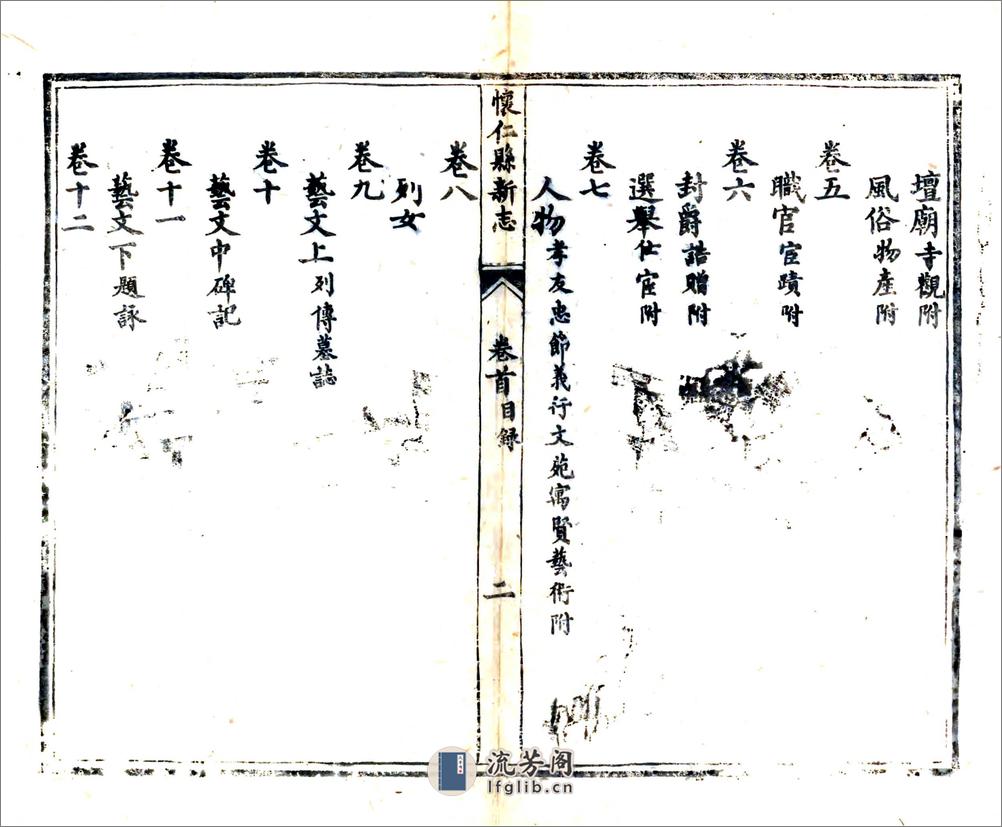 壇廟寺觀附
風俗物産附
卷五
職官宦蹟附
卷六
封爵誥贈附
選舉仕宦附
卷七
人物孝友忠節義行文苑寓賢藝術附
懷仁縣新志
卷首目録
二
卷八
列女
卷九
藝文上列傳墓誌
卷十
藝文中碑記
卷十一
藝文下題詠
卷十二
流芳阁
lfglib.cn